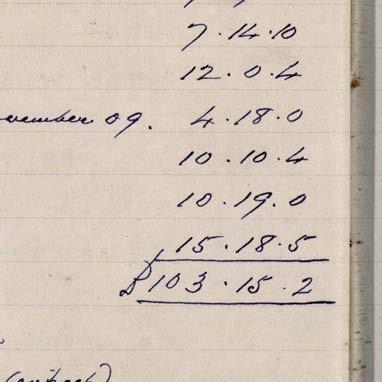 7.14.10
12.0.4
09. 4.18.0
10.10.4
10.19.0
15.18.5
£103.15.2